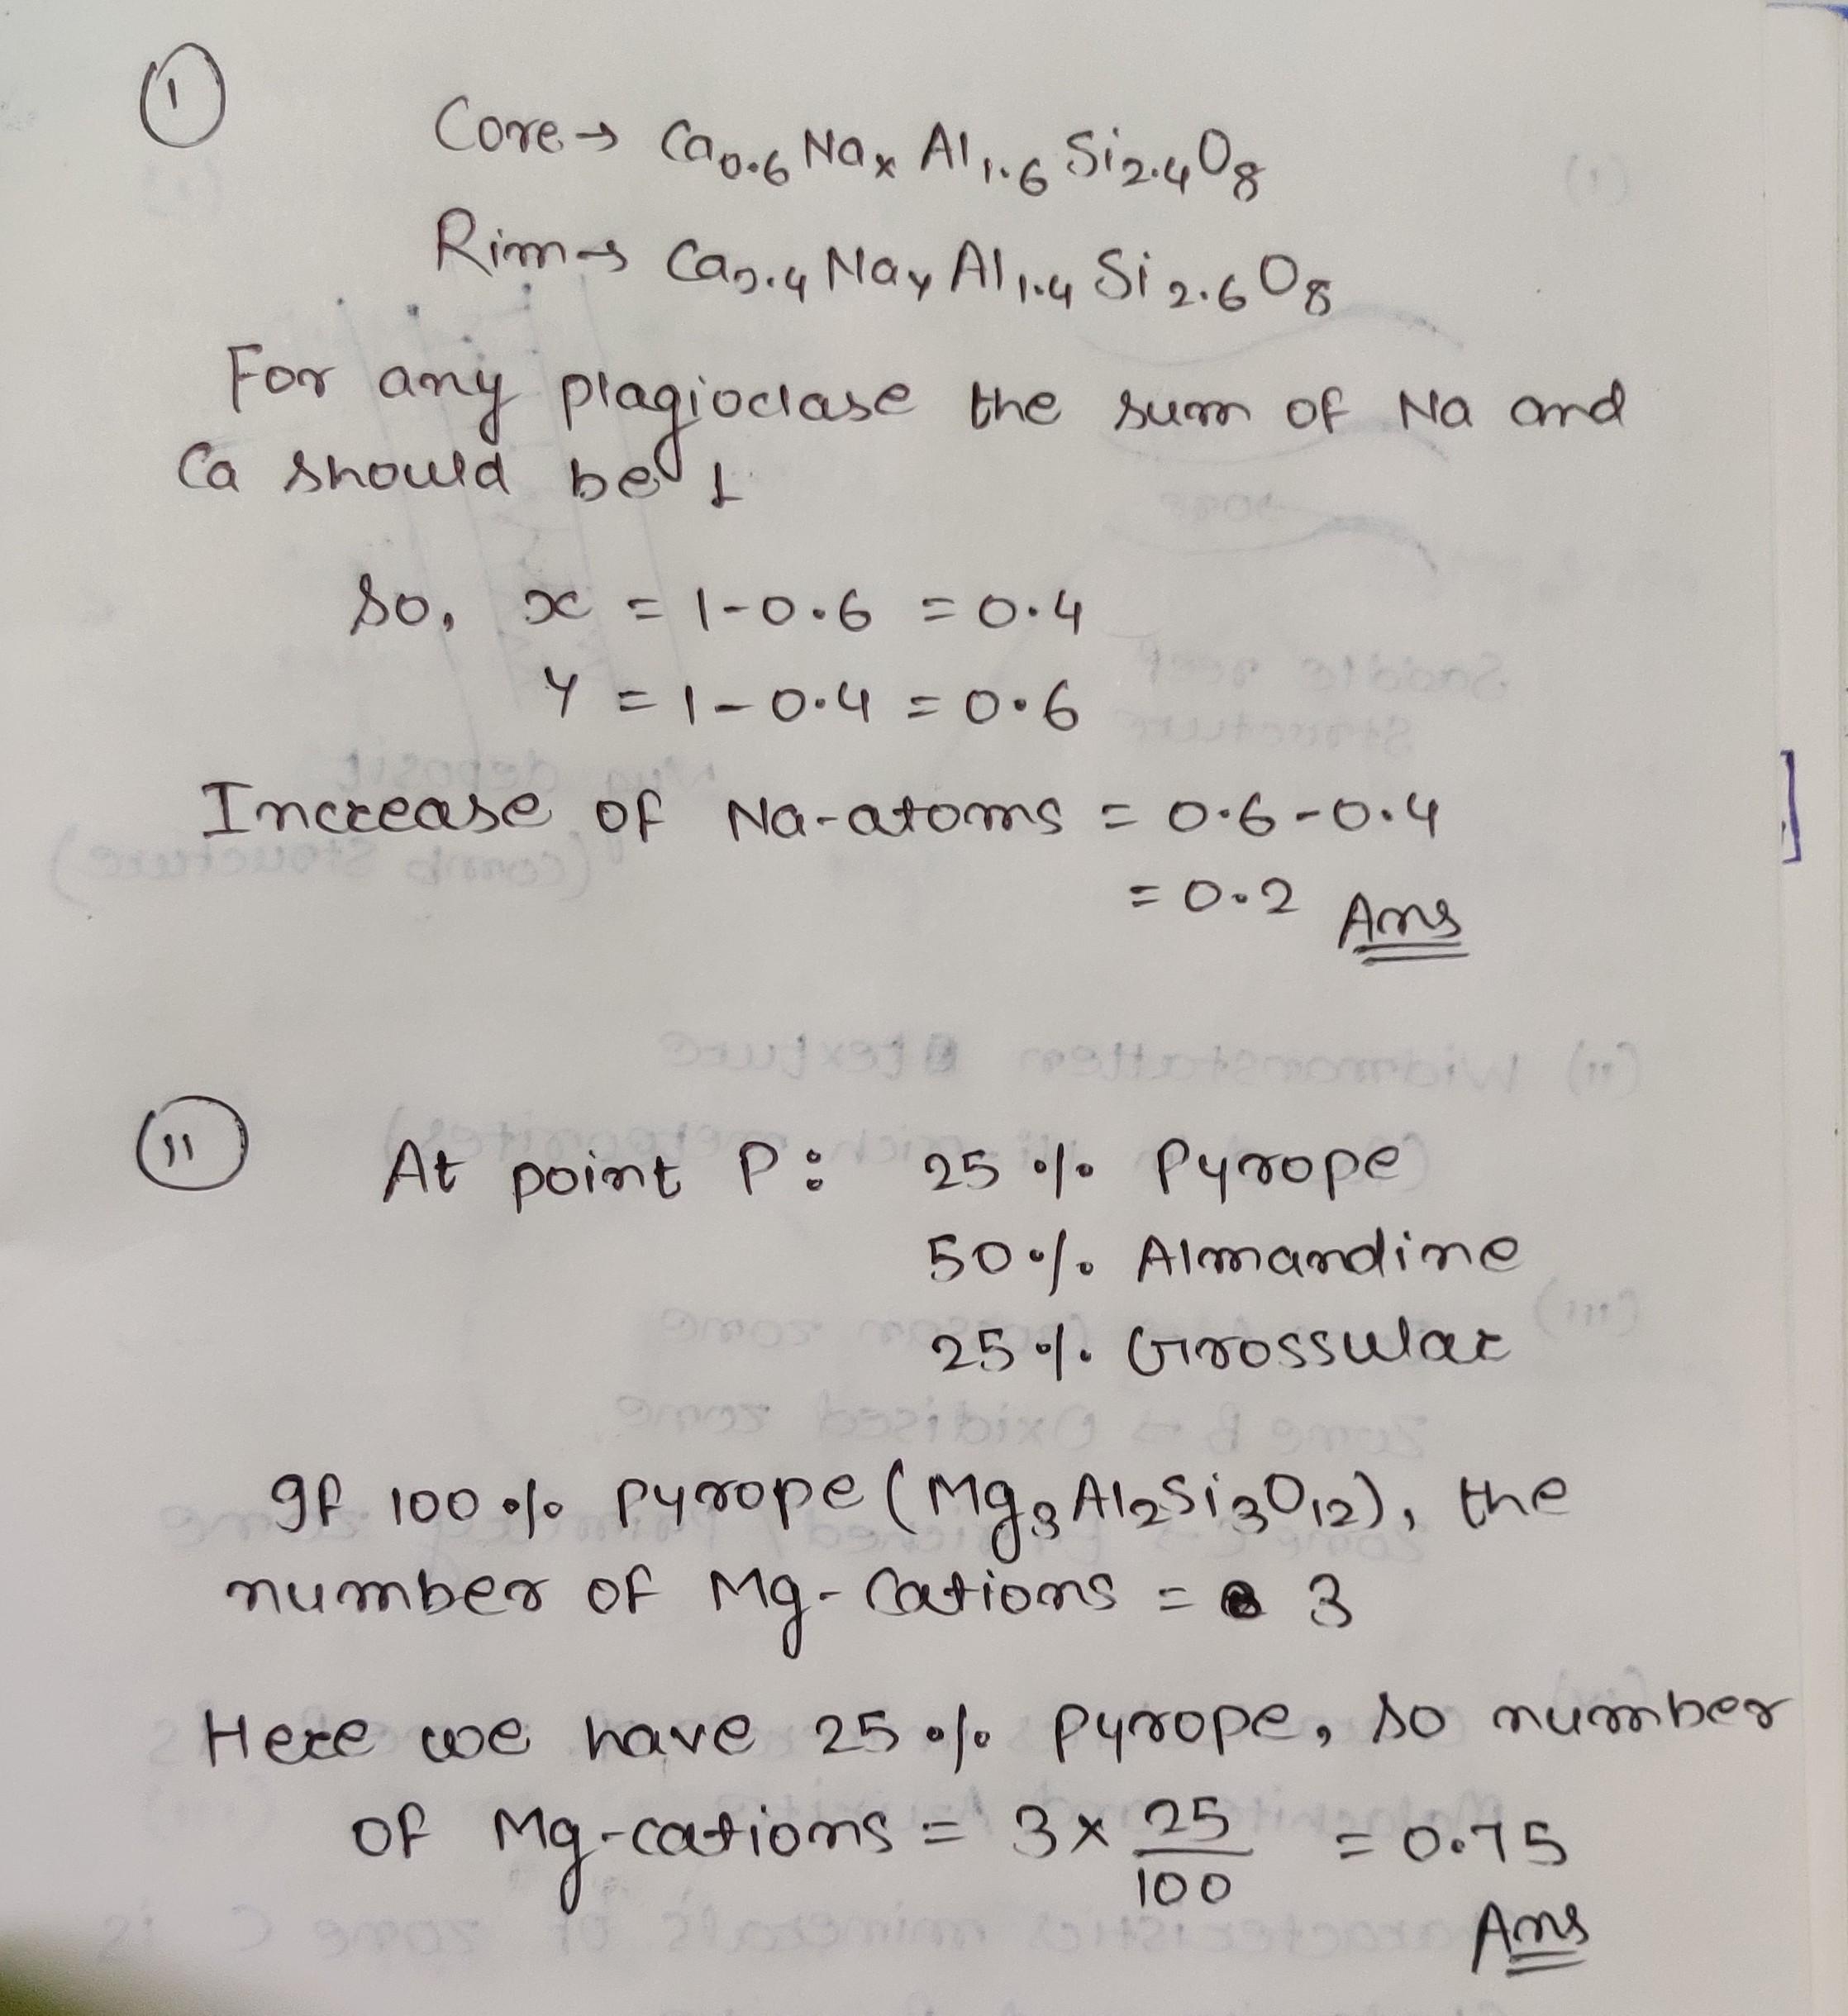 (1)
Core → Ca0.6 Nax Al1.6 Si2.4O8
Rim → Ca0.4 Nay Al1.4 Si2.6O8
For any plagioclase the sum of Na and
Ca should be 1
So, x = 1-0.6 = 0.4
y = 1-0.4 = 0.6
Increase of Na-atoms = 0.6-0.4
= 0.2 Ans
(11)
At point P: 25% Pyrope
50% Almandine
25% Grossular
If 100% pyrope (Mg3Al2Si3O12), the
number of Mg-Cations = 3
Here we have 25% pyrope, so number
of Mg-cations = 3 x 25/100 = 0.75
Ans